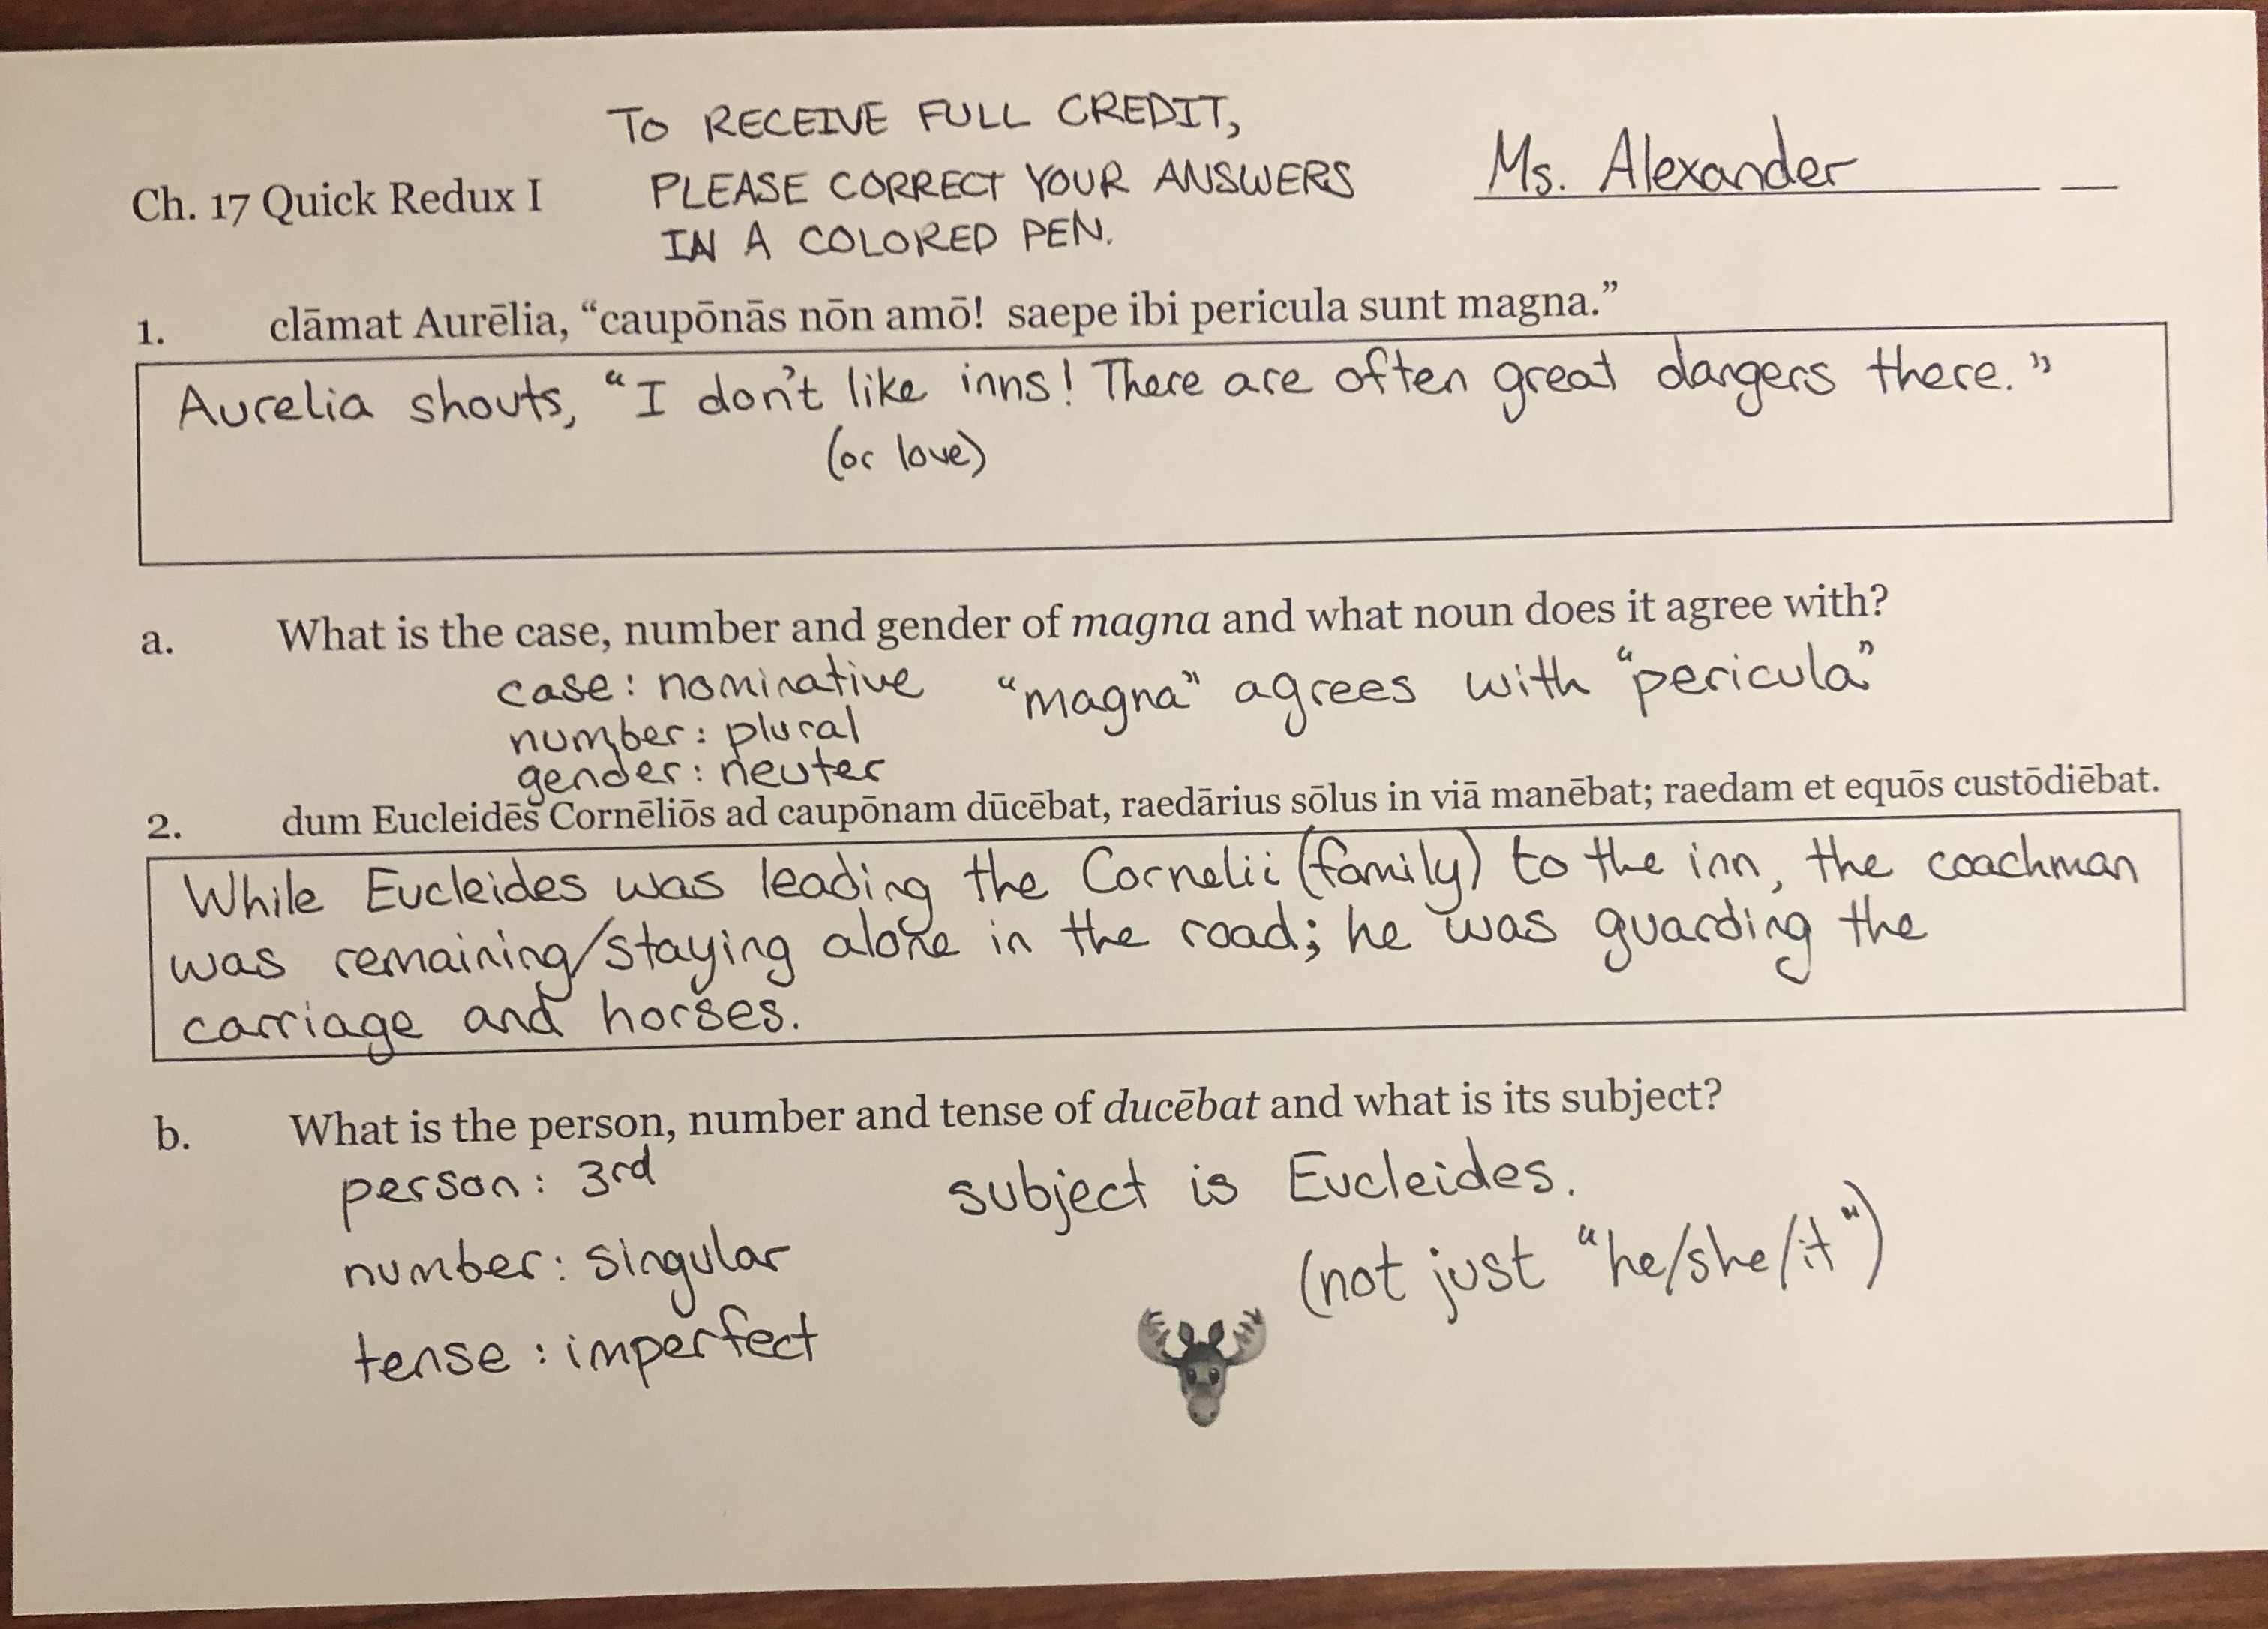 TO RECEIVE FULL CREDIT,
PLEASE CORRECT YOUR ANSWERS
IN A COLORED PEN.
Ch. 17 Quick Redux I
Ms. Alexander
1. clāmat Aurēlia, “caupōnās nōn amō! saepe ibi pericula sunt magna.”
Aurelia shouts, “I don't like inns! There are often great dangers there.”
(or love)
a. What is the case, number and gender of magna and what noun does it agree with?
case: nominative
number: plural
gender: neuter
“magna” agrees with “pericula”
2. dum Eucleidēs Cornēliōs ad caupōnam dūcēbat, raedārius sōlus in viā manēbat; raedam et equōs custōdiēbat.
While Eucleides was leading the Cornelii (family) to the inn, the coachman
was remaining/staying alone in the road; he was guarding the
carriage and horses.
b. What is the person, number and tense of ducēbat and what is its subject?
person: 3rd
number: singular
tense: imperfect
subject is Eucleides.
(not just “he/she/it”)